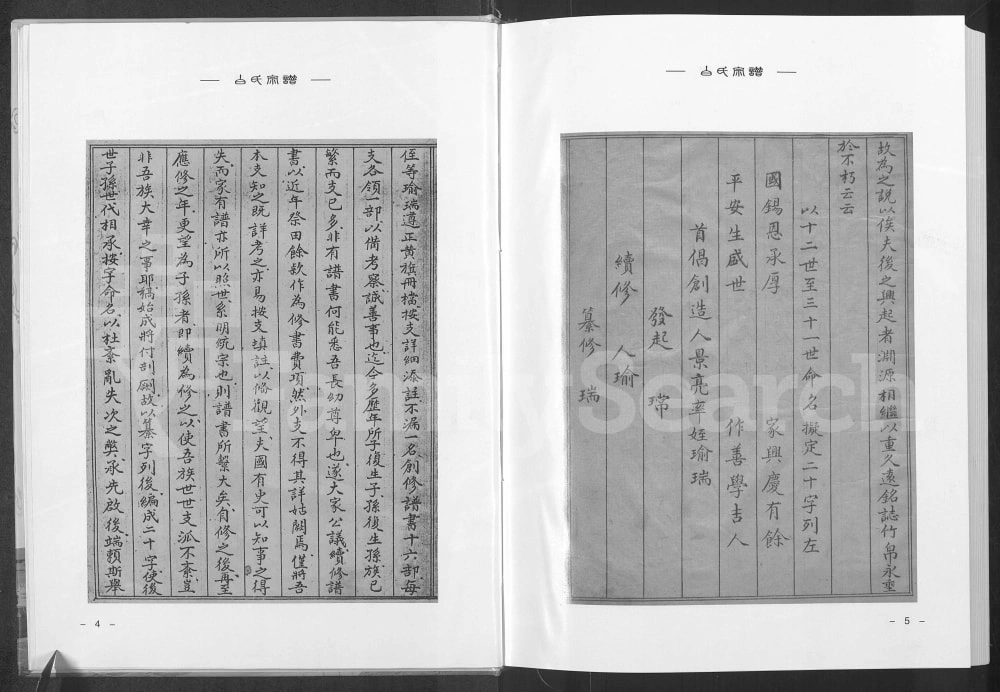 白氏宗譜
侄等瑜瑞遵正黃旗冊檔按支詳細添註不漏一名創修譜書十六部每
支各領一部以備考察誠善事也迄今多歷年所子復生子孫復生孫族已
繁而支已多非有譜書何能悉吾長幼尊卑也遂大家公議續修譜
書以近年祭田餘款作為修書費項然外支不得其詳姑闕焉僅將吾
本支知之既詳考之亦易按支填註以備觀望夫國有史可以知事之得
失而家有譜亦所以照世系明統宗也則譜書所繫大矣自修之後再至
應修之年更望為子孫者即續為修之以使吾族世世支派不紊豈
非吾族大幸之事耶稿始成將付剞劂故以纂字列後編成二十字使後
世子孫世代相承按字命名以杜紊亂失次之獘承先啟後端賴斯舉
- 4 -
白氏宗譜
故為之說以俟夫後之興起者淵源相繼以重久遠銘誌竹帛永垂
於不朽云云
以十二世至三十一世命名擬定二十字列左
國錫恩承厚 家興慶有餘
平安生盛世 作善學吉人
首倡創造人景亮率姪瑜瑞
發起 常
續修 人瑜
纂修 瑞
- 5 -
FamilySearch